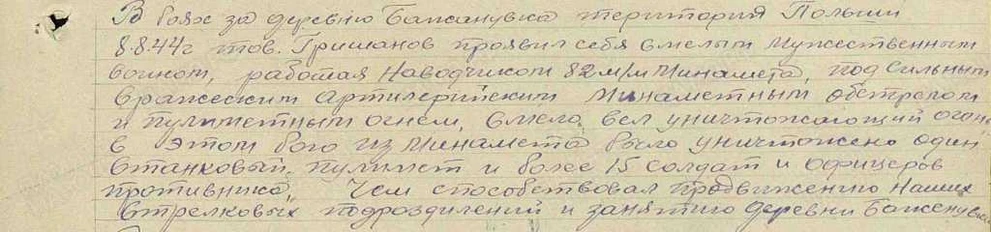 В боях за деревню Бажанувка територия Польши
8.8.44г тов. Гришанов проявил себя смелым мужественным
воином, работая Наводчиком 82 м/м Минамета, под сильным
вражеским Артилерийским Минаметным обстрелом
и пулиметным огнем, смело вел уничтожающий огонь
в этом бою из Минамета было уничтожено один
станковый пулимет и более 15 солдат и офицеров
противника, Чем способствовал продвижению Наших
стрелковых подрозделений и занятию деревни Баженувка